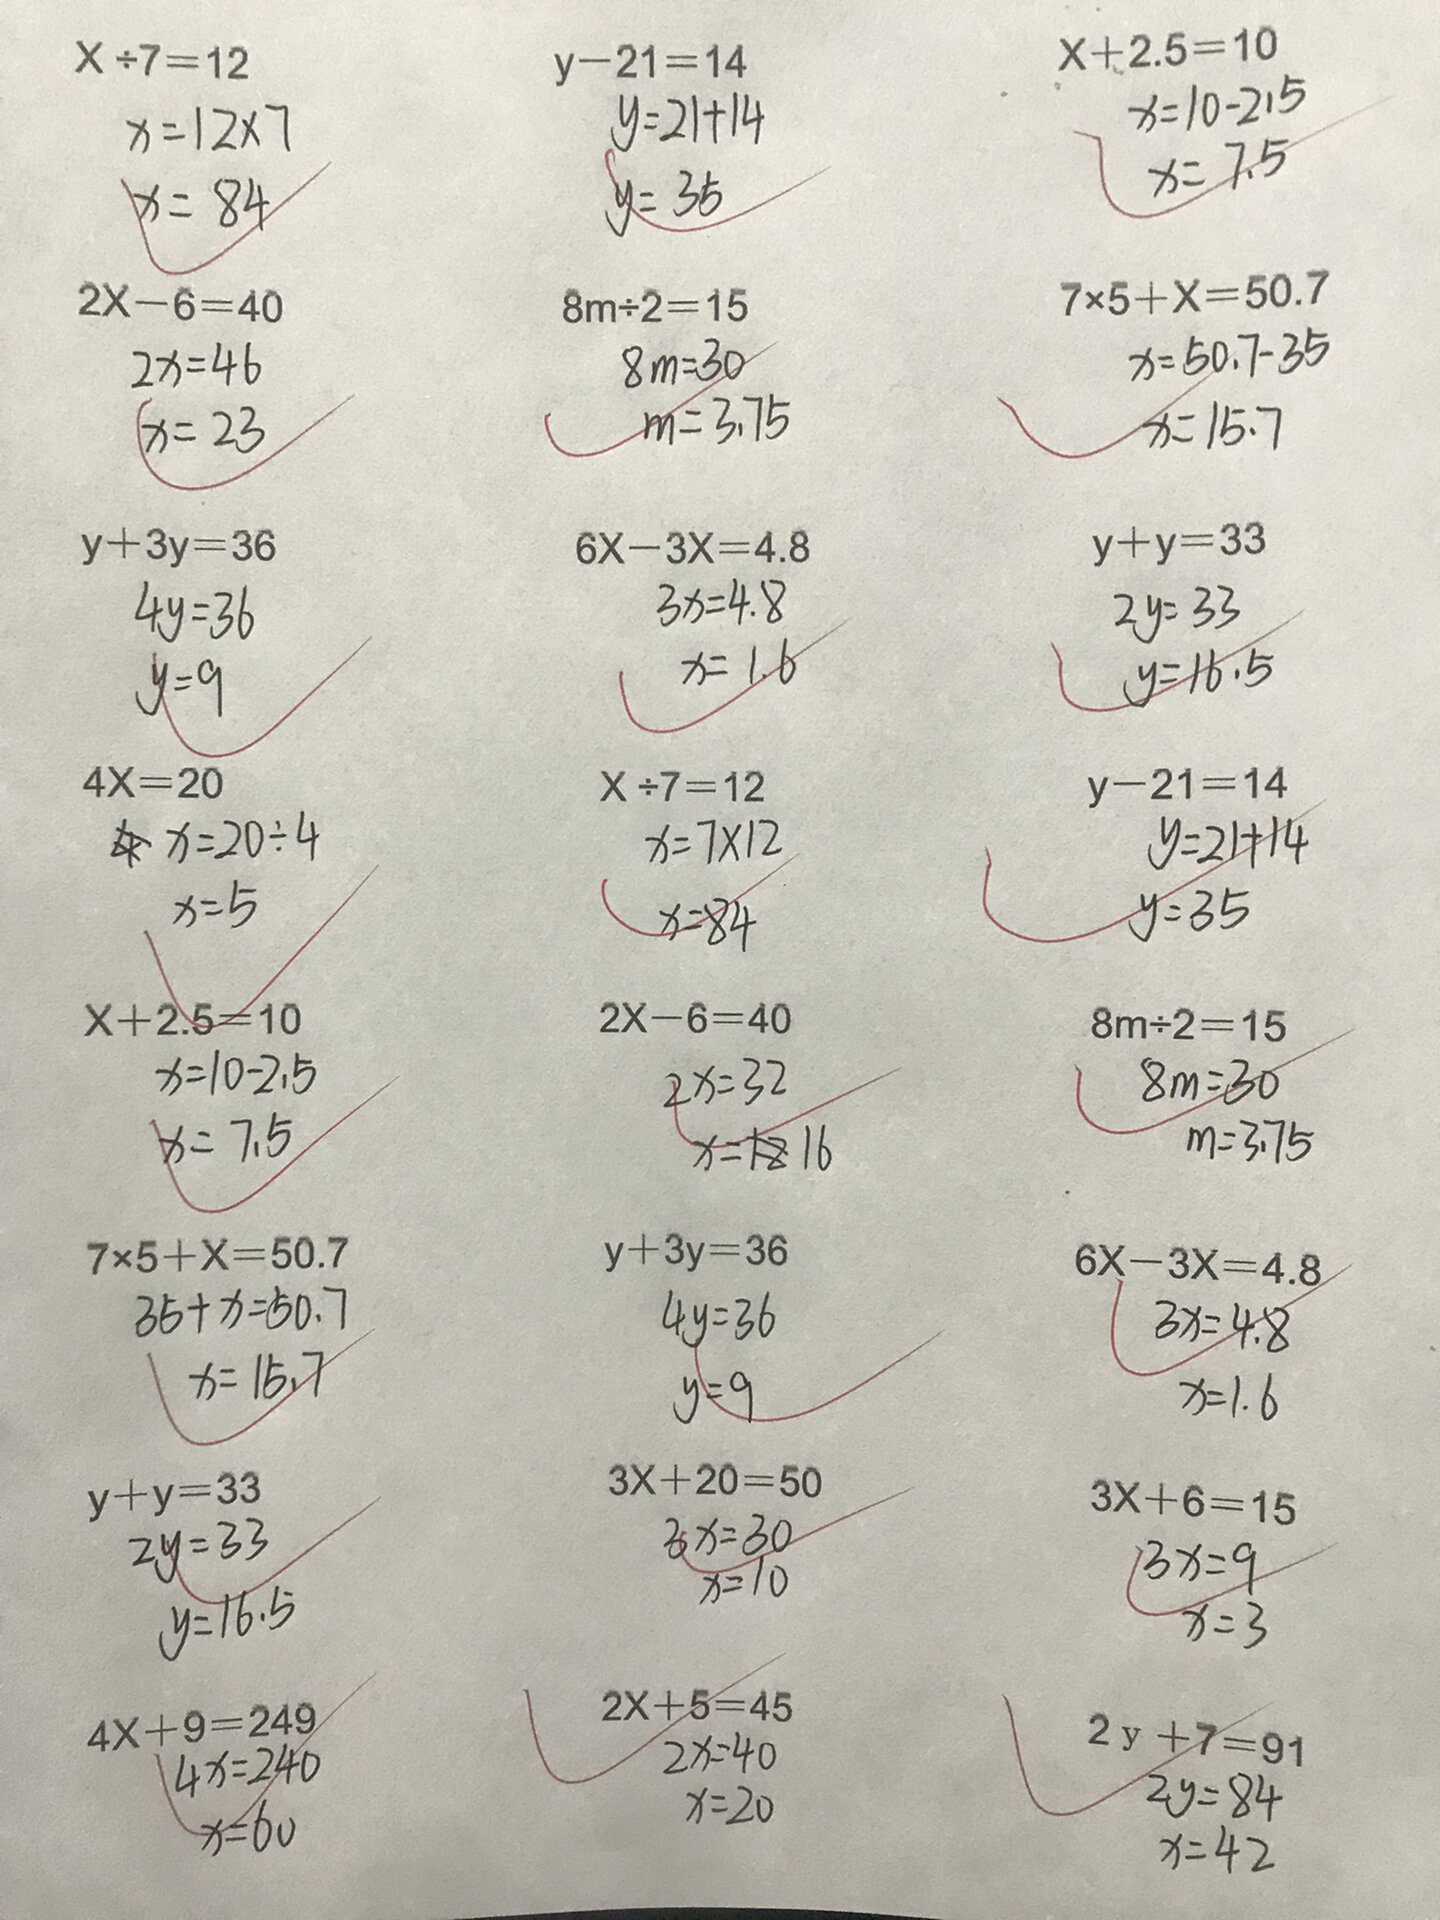 X÷7=12
x=12×7
x=84
y-21=14
y=21+14
y=35
X+2.5=10
x=10-2.5
x=7.5
2X-6=40
2x=46
x=23
8m÷2=15
8m=30
m=3.75
7×5+X=50.7
x=50.7-35
x=15.7
y+3y=36
4y=36
y=9
6X-3X=4.8
3x=4.8
x=1.6
y+y=33
2y=33
y=16.5
4X=20
x=20÷4
x=5
X÷7=12
x=7×12
x=84
y-21=14
y=21+14
y=35
X+2.5=10
x=10-2.5
x=7.5
2X-6=40
2x=32
x=16
8m÷2=15
8m=30
m=3.75
7×5+X=50.7
35+x=50.7
x=15.7
y+3y=36
4y=36
y=9
6X-3X=4.8
3x=4.8
x=1.6
y+y=33
2y=33
y=16.5
3X+20=50
3x=30
x=10
3X+6=15
3x=9
x=3
4X+9=249
4x=240
x=60
2X+5=45
2x=40
x=20
2y+7=91
2y=84
x=42